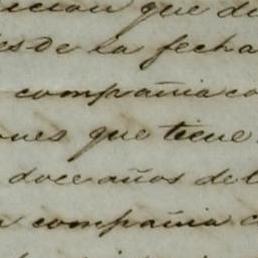 que
desde la fecha
compañia co
ones que tiene
doce años del
compañia